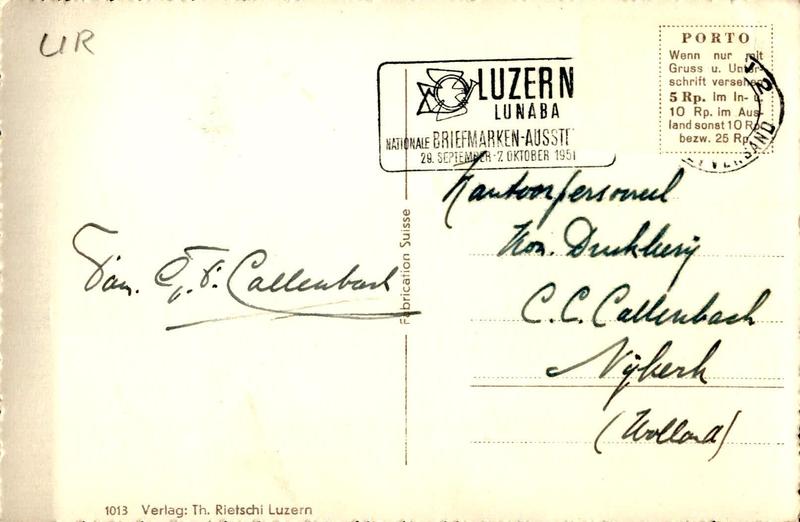 UR
LUZERN
LUNABA
NATIONALE BRIEFMARKEN-AUSST
29. SEPTEMBER-7. OKTOBER 1951
PORTO
Wenn nur mit
Gruss u. Unter-
schrift versehen
5 Rp. im In- u.
10 Rp. im Aus-
land sonst 10 Rp.
bezw. 25 Rp.
VERSAND
Fam. C. F. Callenbach
Fabrication Suisse
Kantoorpersoneel
Kon. Drukkerij
C. C. Callenbach
Nijkerk
(Holland)
1013 Verlag: Th. Rietschi Luzern